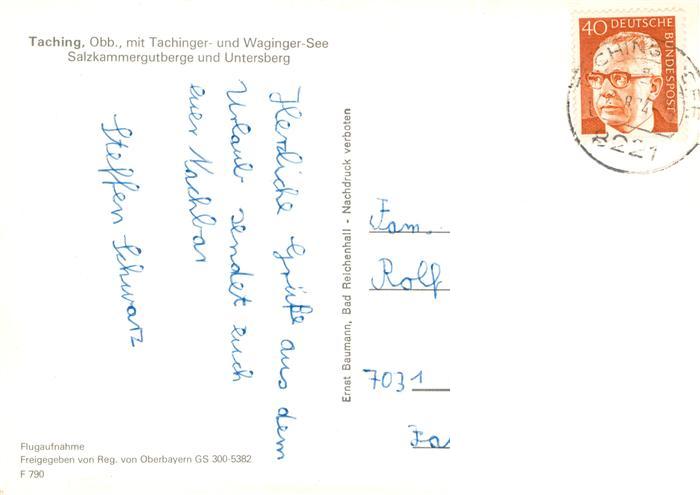 Taching, Obb., mit Tachinger- und Waginger-See
Salzkammergutberge und Untersberg
Herzliche Grüße aus dem
Urlaub sendet euch
euer Nachbar
Steffen Schwarz
Ernst Baumann, Bad Reichenhall - Nachdruck verboten
40 DEUTSCHE
BUNDESPOST
8221
Fam.
Rolf
7031
Flugaufnahme
Freigegeben von Reg. von Oberbayern GS 300-5382
F 790